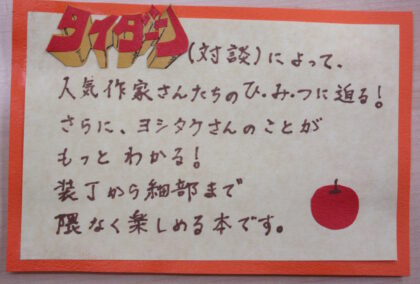 タイダーン(対談)によって、
人気作家さんたちのひ・み・つに迫る!
さらに、ヨシタケさんのことが
もっとわかる!
装丁から細部まで
隈なく楽しめる本です。